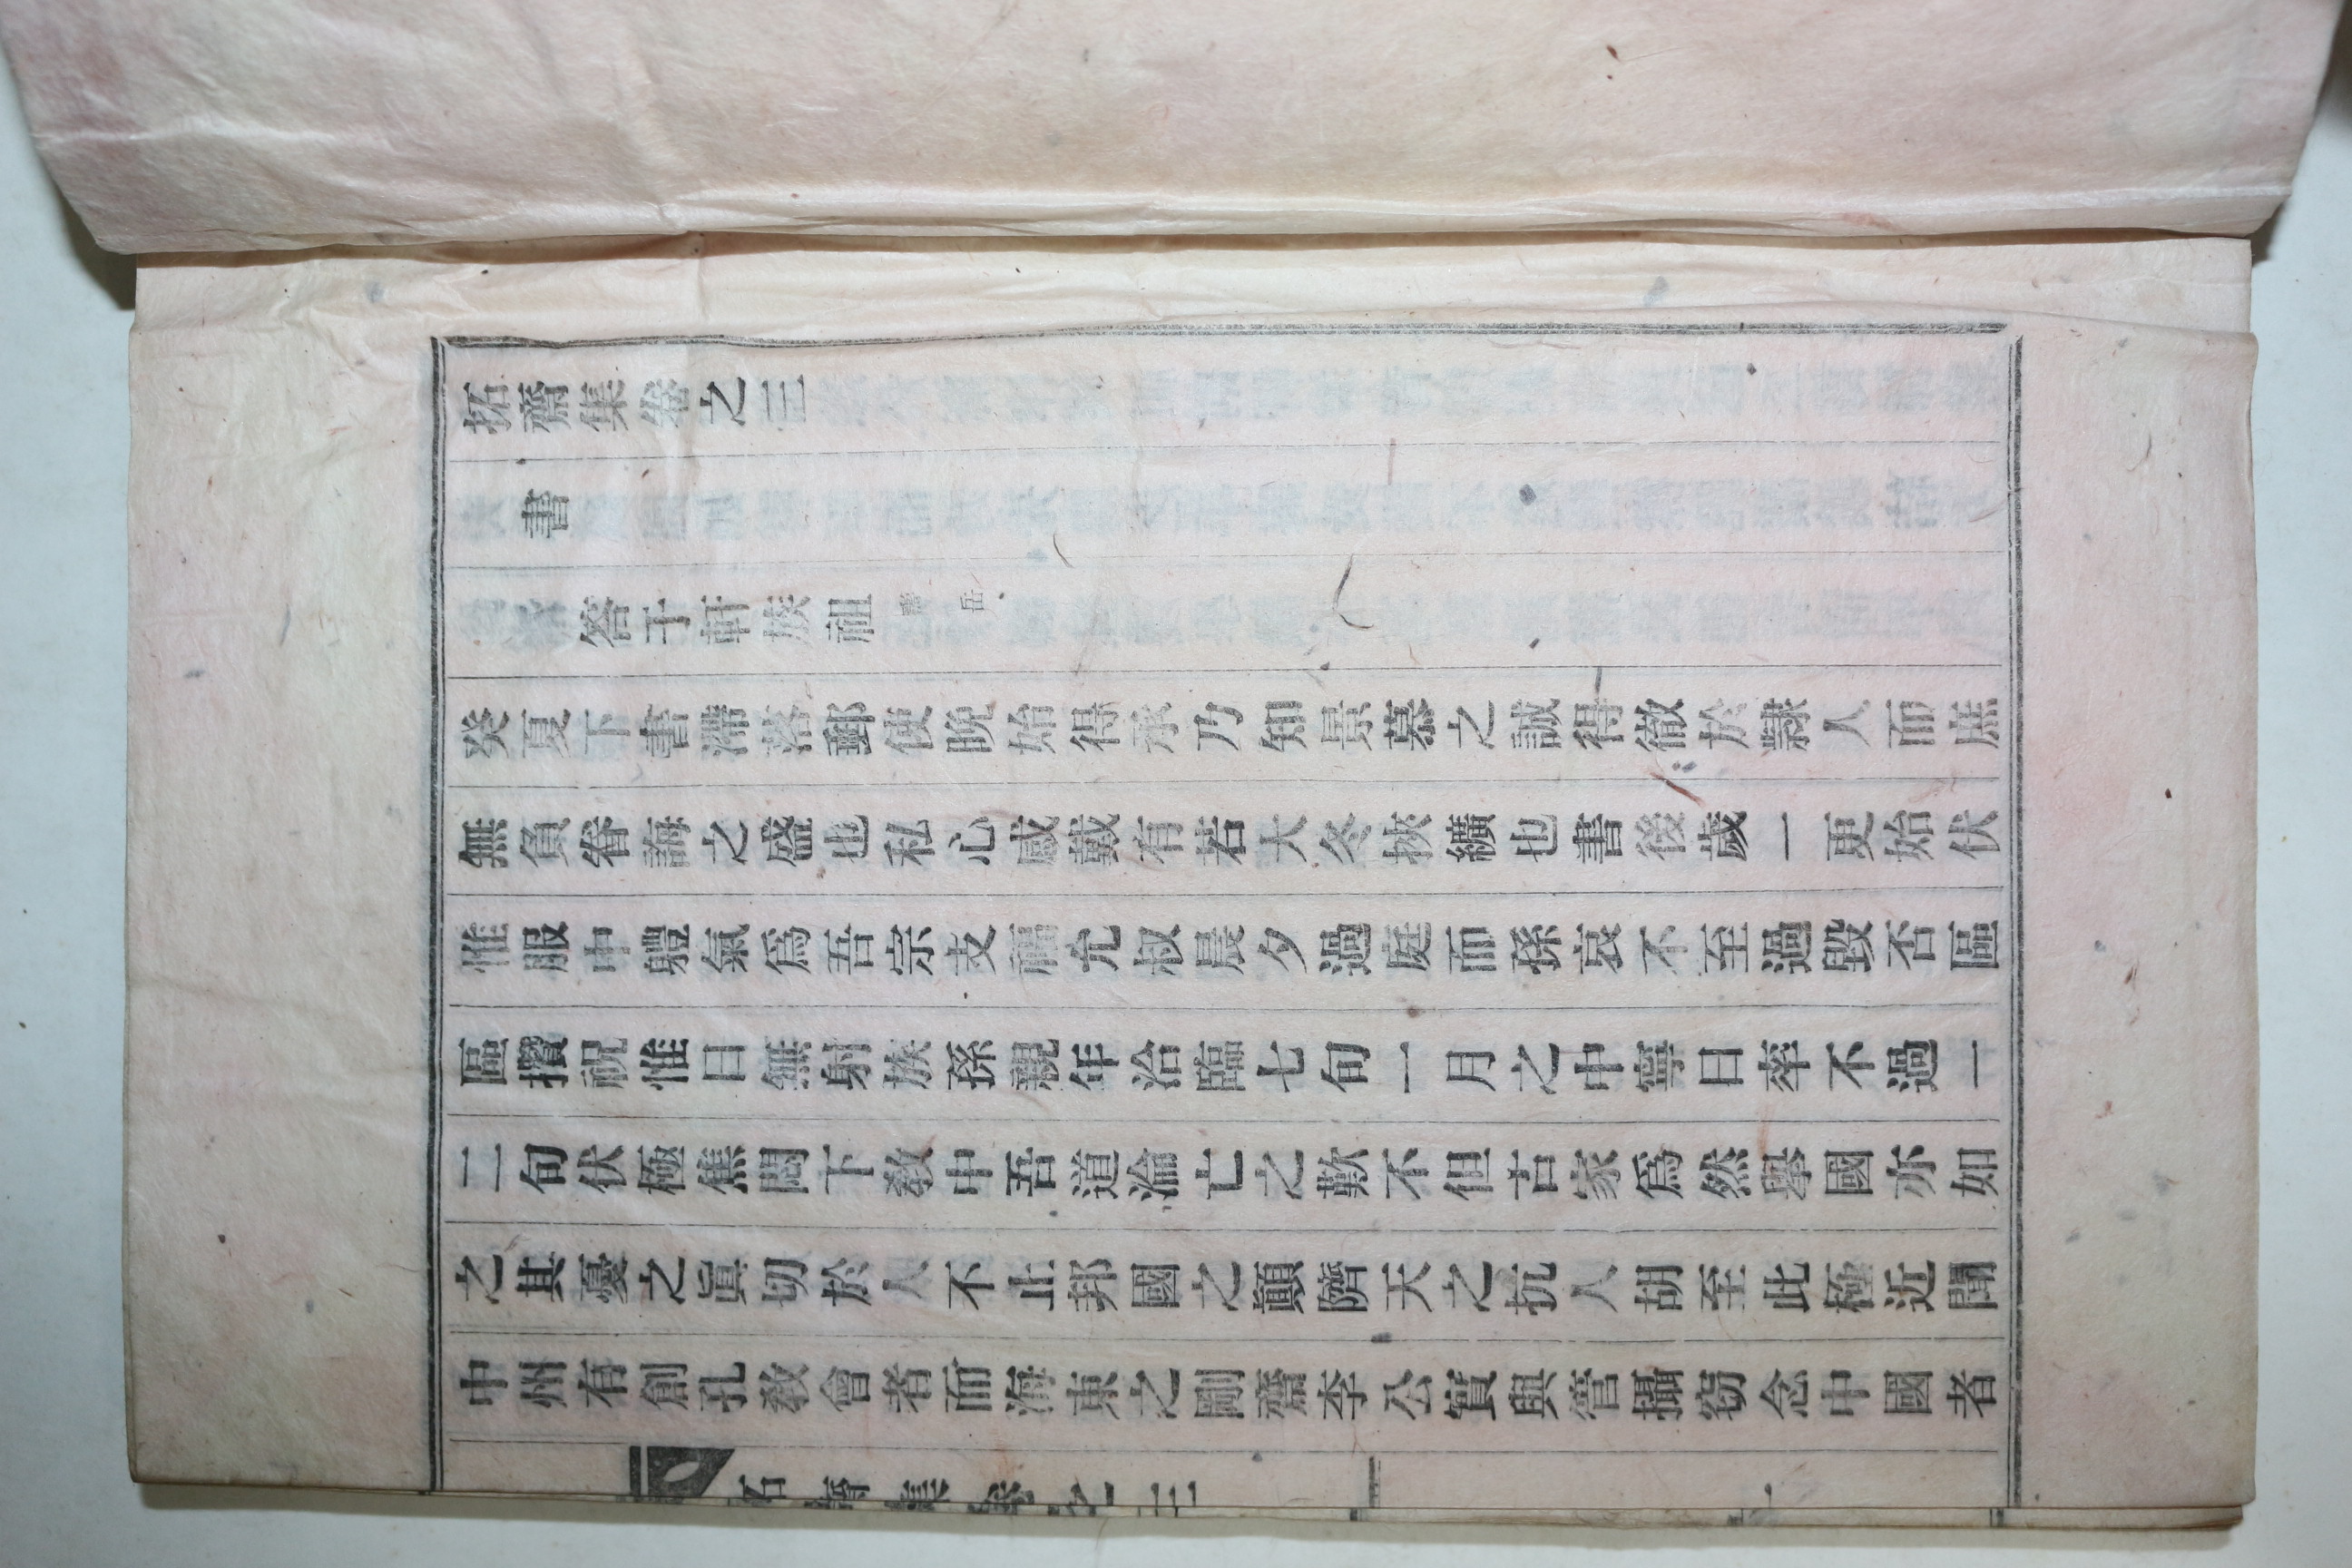 拓齋集卷之三
書
答于軒族祖 岳
癸夏下書滯落郵便晩始得承乃知景慕之誠得徹於隷人而庶
無負眷誨之盛也私心感戴有若大冬挾纊也書後歲一更始伏
惟服中體氣爲吾宗支福允叔晨夕過庭而孫哀不至過毁否區
區攢祝惟日無射族孫親年洽臨七旬一月之中寧日率不過一
二旬伏極焦悶下敎中吾道淪亡之歎不但古家爲然擧國亦如
之其憂之眞切於人不止邦國之顚隮天之抗人胡至此極近聞
中州有創孔敎會者而海東之剛齋李公實與管攝窃念中國者
拓齋集卷之三 一